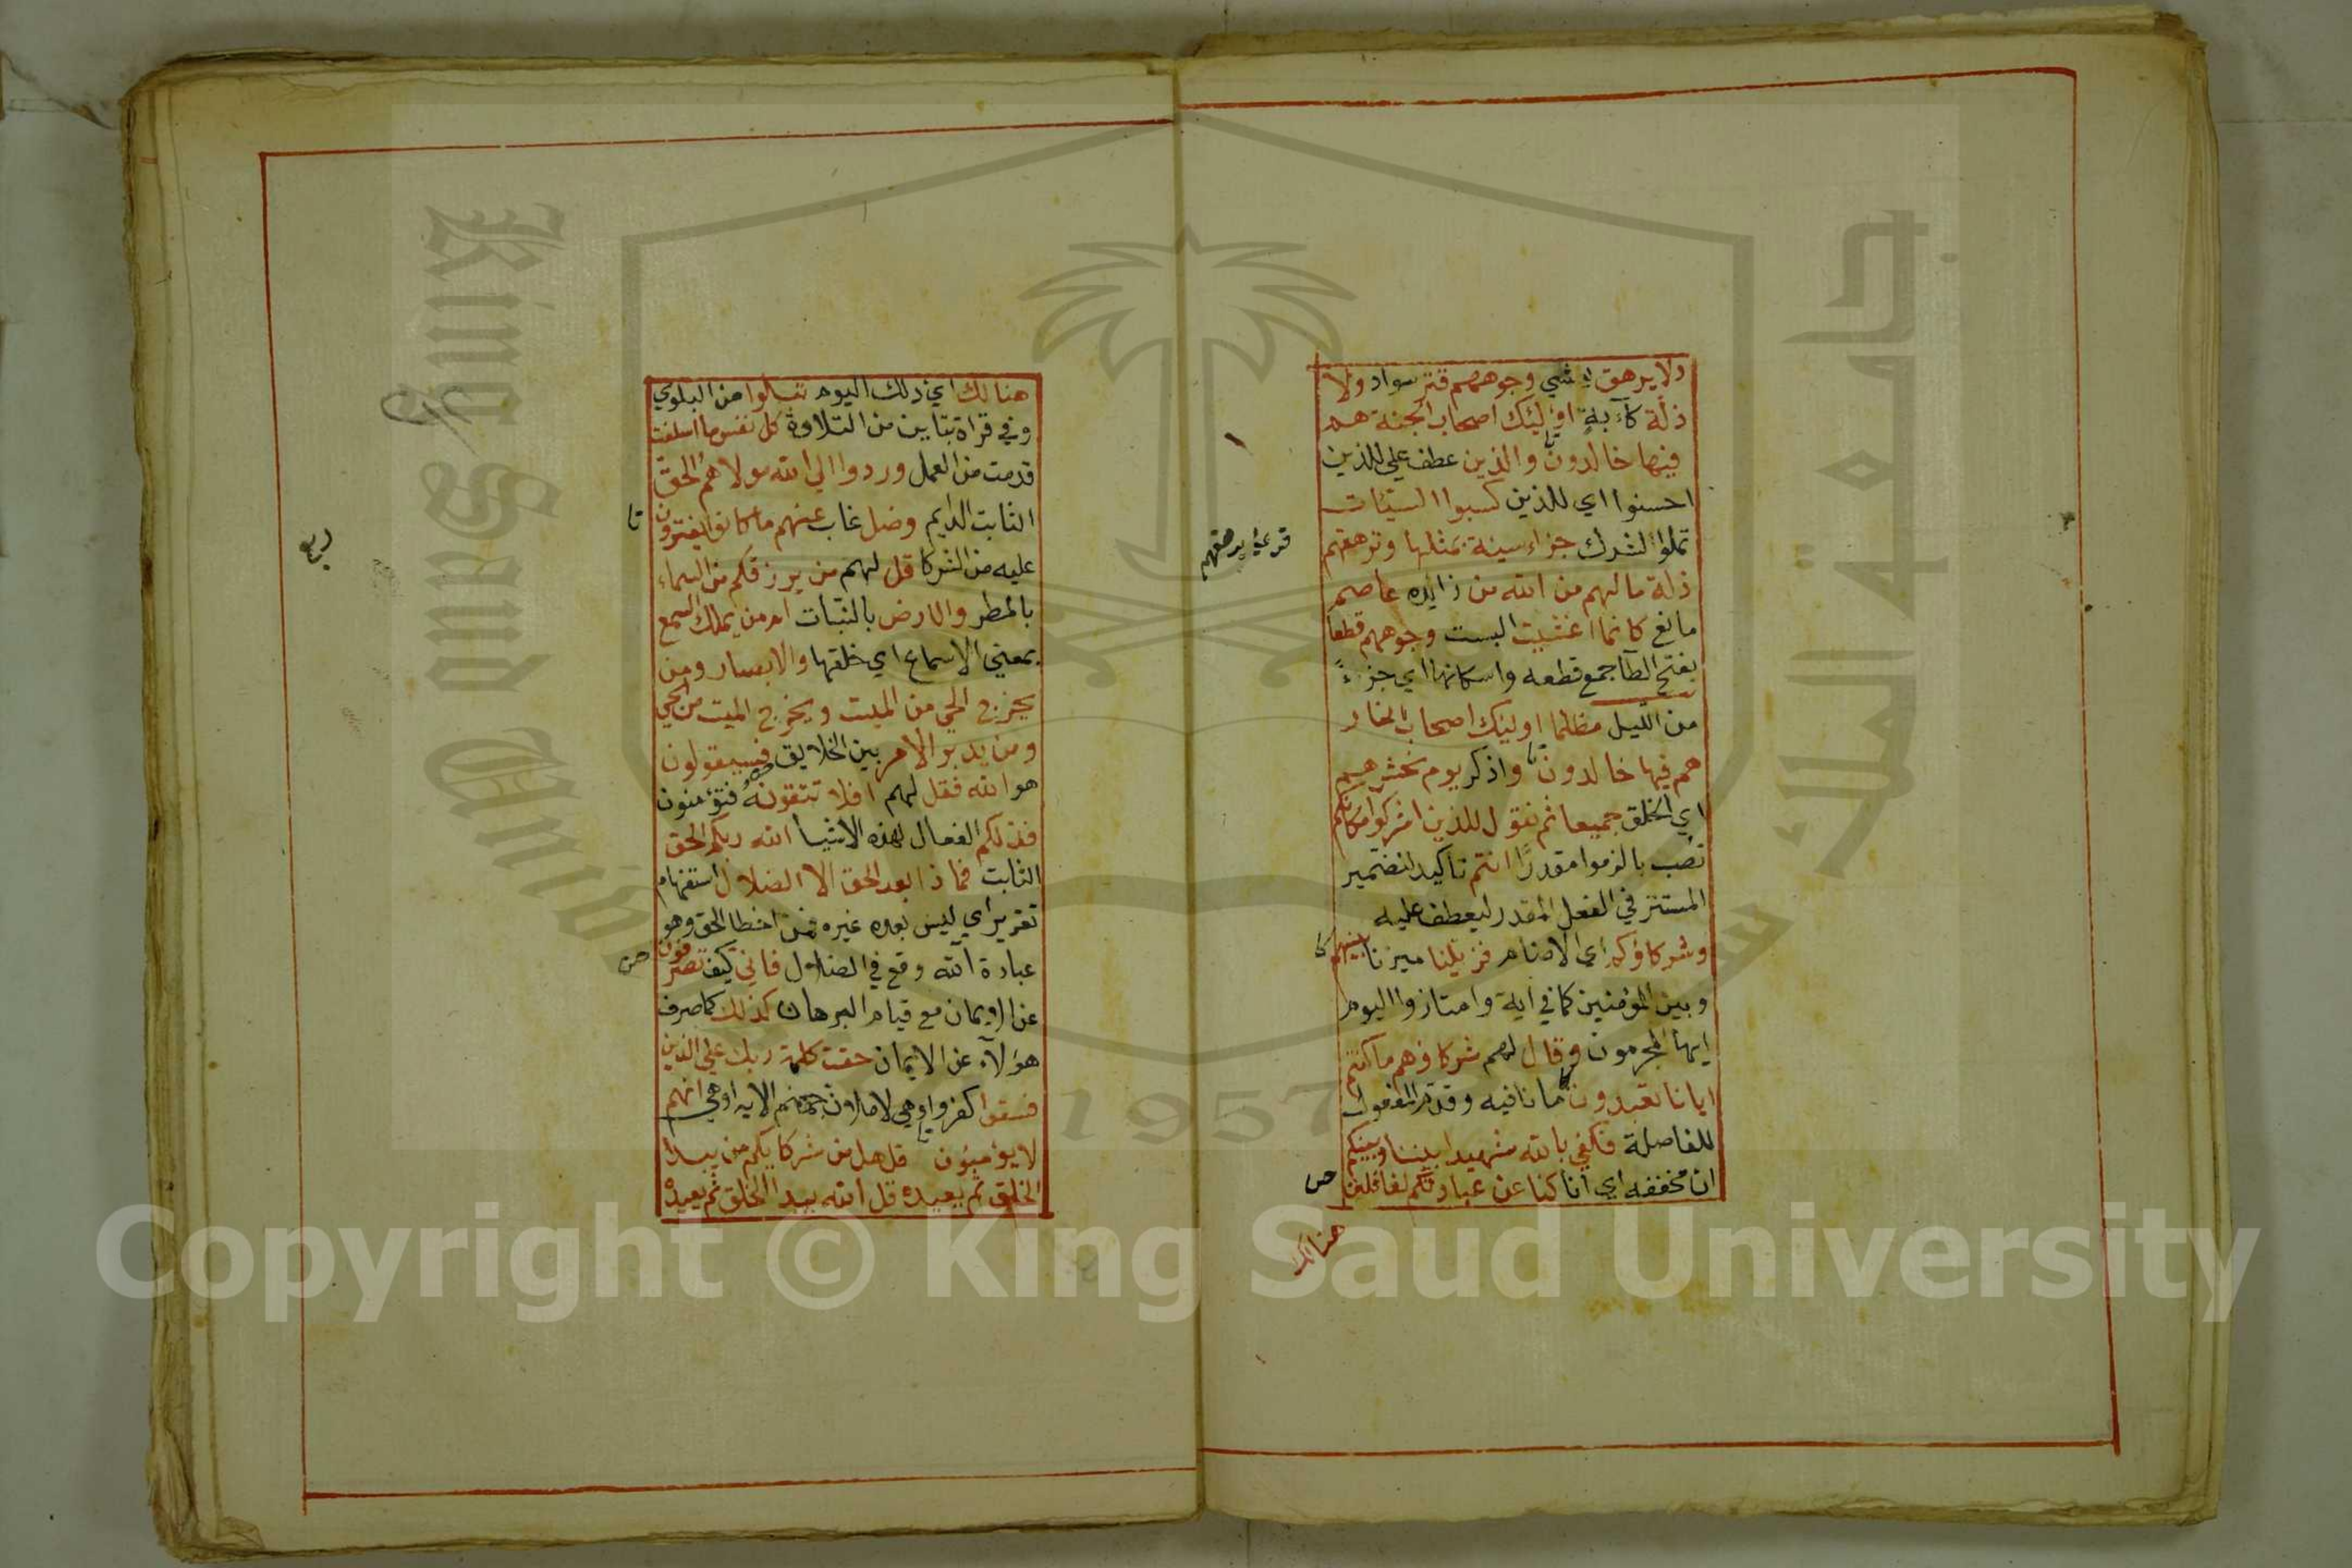 ولا يرهق يغشي وجوههم قتر سواد ولا
ذلة كآبة اوليك اصحاب الجنة هم
فيها خالدون والذين عطف علي للذين
احسنوا اي للذين كسبوا السيئات
عملوا الشرك جزاء سيئة بمثلها وترهقهم
ذلة مالهم من الله من زايده عاصم
مانع كانما اغشيت البست وجوههم قطعا
بفتح الطآ جمع قطعه واسكانها اي جزءً
من الليل مظلما اوليك اصحاب النار
هم فيها خالدون واذكر يوم نحشرهم
اي الخلق جميعا ثم نقول للذين اشركوا مكانكم
نصب بالزموا مقدرًا انتم تاكيد للضمير
المستتر في الفعل المقدر ليعطف عليه
وشركاؤكم اي الاصنام فزيلنا ميزنا بينهم
وبين المؤمنين كما في اية وامتازوا اليوم
ايها المجرمون وقال لهم شركاؤهم ما كنتم
ايانا تعبدون ما نافيه وقدم المفعول
للفاصلة فكفي بالله شهيدا بيننا وبينكم
ان مخففه اي انا كنا عن عبادتكم لغافلين
هنالك
هنالك اي ذلك اليوم تبلوا من البلوي
وفي قراة بتاين من التلاوة كل نفس ما اسلفت
قدمت من العمل وردوا الي الله مولاهم الحق
الثابت الدايم وضل غاب عنهم ما كانوا يفترون
عليه من الشركا قل لهم من يرزقكم من السماء
بالمطر والارض بالنبات امن يملك السمع
بمعني الاسماع اي خلقها والابصار ومن
يخرج الحي من الميت ويخرج الميت من الحي
ومن يدبر الامر بين الخلايق فسيقولون
هو الله فقل لهم افلا تتقونه فتؤمنون
فذلكم الفعال لهذه الاشيا الله ربكم الحق
الثابت فماذا بعد الحق الا الضلال استفهام
تقرير اي ليس بعده غيره فمن اخطا الحق وهو
عبادة الله وقع في الضلال فاني كيف تصرفون
عن الايمان مع قيام البرهان كذلك كما صرف
هولآء عن الايمان حقت كلمة ربك علي الذين
فسقوا كفروا وهي لاملان جهنم الايه او هي انهم
لا يؤمنون قل هل من شركايكم من يبدا
الخلق ثم يعيده قل الله يبدا الخلق ثم يعيده
King Saud University
جامعة الملك سعود
1957
Copyright © King Saud University